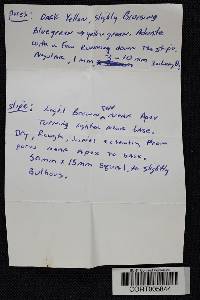 Pores: Dark Yellow, slightly Bruising
bluegreen → yellow green. Adnate
with a few running down the stipe.
Angular, 1mm - 10mm
Stipe: Light Brown near Apex
Turning lighter near base.
Dry, Rough, lines extending from
pores near Apex to base.
50mm x 15mm Equal, to slightly